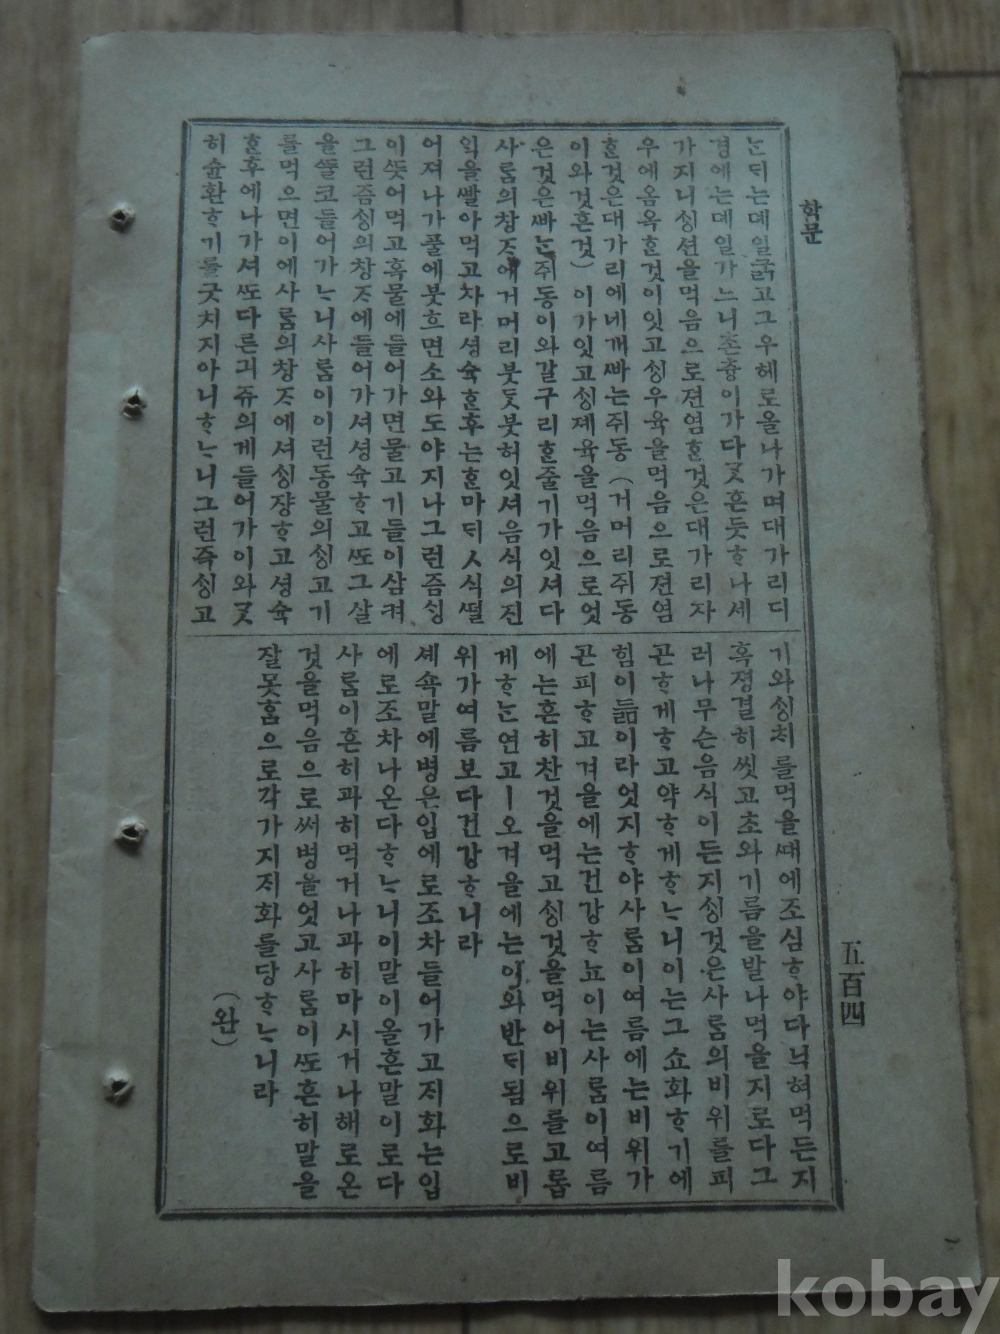 학문
ᄂᆞᆫᄃᆡ는뎨일굵고그우헤로올나가며대가리디
경에는뎨일가느니촌츙이가다ᄀᆞᆺ흔듯ᄒᆞ나세
가지니ᄉᆡᆼ션을먹음으로젼염ᄒᆞᆫ것은대가리자
우에옴옥ᄒᆞᆫ것이잇고ᄉᆡᆼ우육을먹음으로젼염
ᄒᆞᆫ것은대가리에네개ᄲᅡ는쥬동(거머리쥬동
이와ᄀᆞᆺ흔것)이가잇고ᄉᆡᆼ제육을먹음으로엇
은것은ᄲᅡᄂᆞᆫ쥬동이와갈구리ᄒᆞᆫ줄기가잇셔다
사ᄅᆞᆷ의창ᄌᆞ에거머리붓ᄃᆞᆺ붓허잇셔음식의진
익을ᄲᅡᆯ아먹고차라셩슉ᄒᆞᆫ후는ᄒᆞᆫ마ᄃᆡㅅ식ᄯᅥᆯ
어져나가풀에붓흐면소와도야지나그런즘ᄉᆡᆼ
이ᄯᅳᆺ어먹고혹물에들어가면물고기들이삼켜
그런즘ᄉᆡᆼ의창ᄌᆞ에들어가셔셩슉ᄒᆞ고ᄯᅩ그살
을ᄯᅮᆯ코들어가ᄂᆞ니사ᄅᆞᆷ이이런동물의ᄉᆡᆼ고기
를먹으면이에사ᄅᆞᆷ의창ᄌᆞ에셔ᄉᆡᆼ쟝ᄒᆞ고셩슉
ᄒᆞᆫ후에나가셔ᄯᅩ다른긔쥬의게들어가이와ᄀᆞᆺ
히슌환ᄒᆞ기를긋치지아니ᄒᆞᄂᆞ니그런즉ᄉᆡᆼ고
기와ᄉᆡᆼᄎᆡ를먹을ᄯᅢ에조심ᄒᆞ야다닉혀먹든지
혹졍결히씻고초와기름을발나먹을지로다그
러나무슨음식이든지ᄉᆡᆼ것은사ᄅᆞᆷ의비위를피
곤ᄒᆞ게ᄒᆞ고약ᄒᆞ게ᄒᆞᄂᆞ니이는그쇼화ᄒᆞ기에
힘이듦이라엇지ᄒᆞ야사ᄅᆞᆷ이여름에는비위가
곤피ᄒᆞ고겨을에는건강ᄒᆞ뇨이는사ᄅᆞᆷ이여름
에는흔히찬것을먹고ᄉᆡᆼ것을먹어비위를고롭
게ᄒᆞᄂᆞᆫ연고ㅣ오겨을에는이와반ᄃᆡ됨으로비
위가여름보다건강ᄒᆞ니라
셰쇽말에병은입에로조차들어가고ᄌᆡ화는입
에로조차나온다ᄒᆞᄂᆞ니이말이올흔말이로다
사ᄅᆞᆷ이흔히과히먹거나과히마시거나해로온
것을먹음으로써병을엇고사ᄅᆞᆷ이ᄯᅩ흔히말을
잘못ᄒᆞᆷ으로각가지ᄌᆡ화를당ᄒᆞᄂᆞ니라
(완)
五百四
kobay